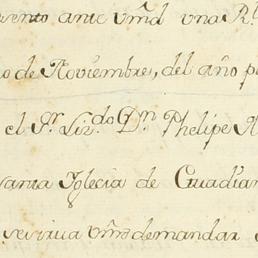 sento ante Vmd una Rl
o de Noviembre, del año p
el Sr. Liz.do Dn Phelipe A
santa Yglecia de Guadian
se sirva Vmd demandar